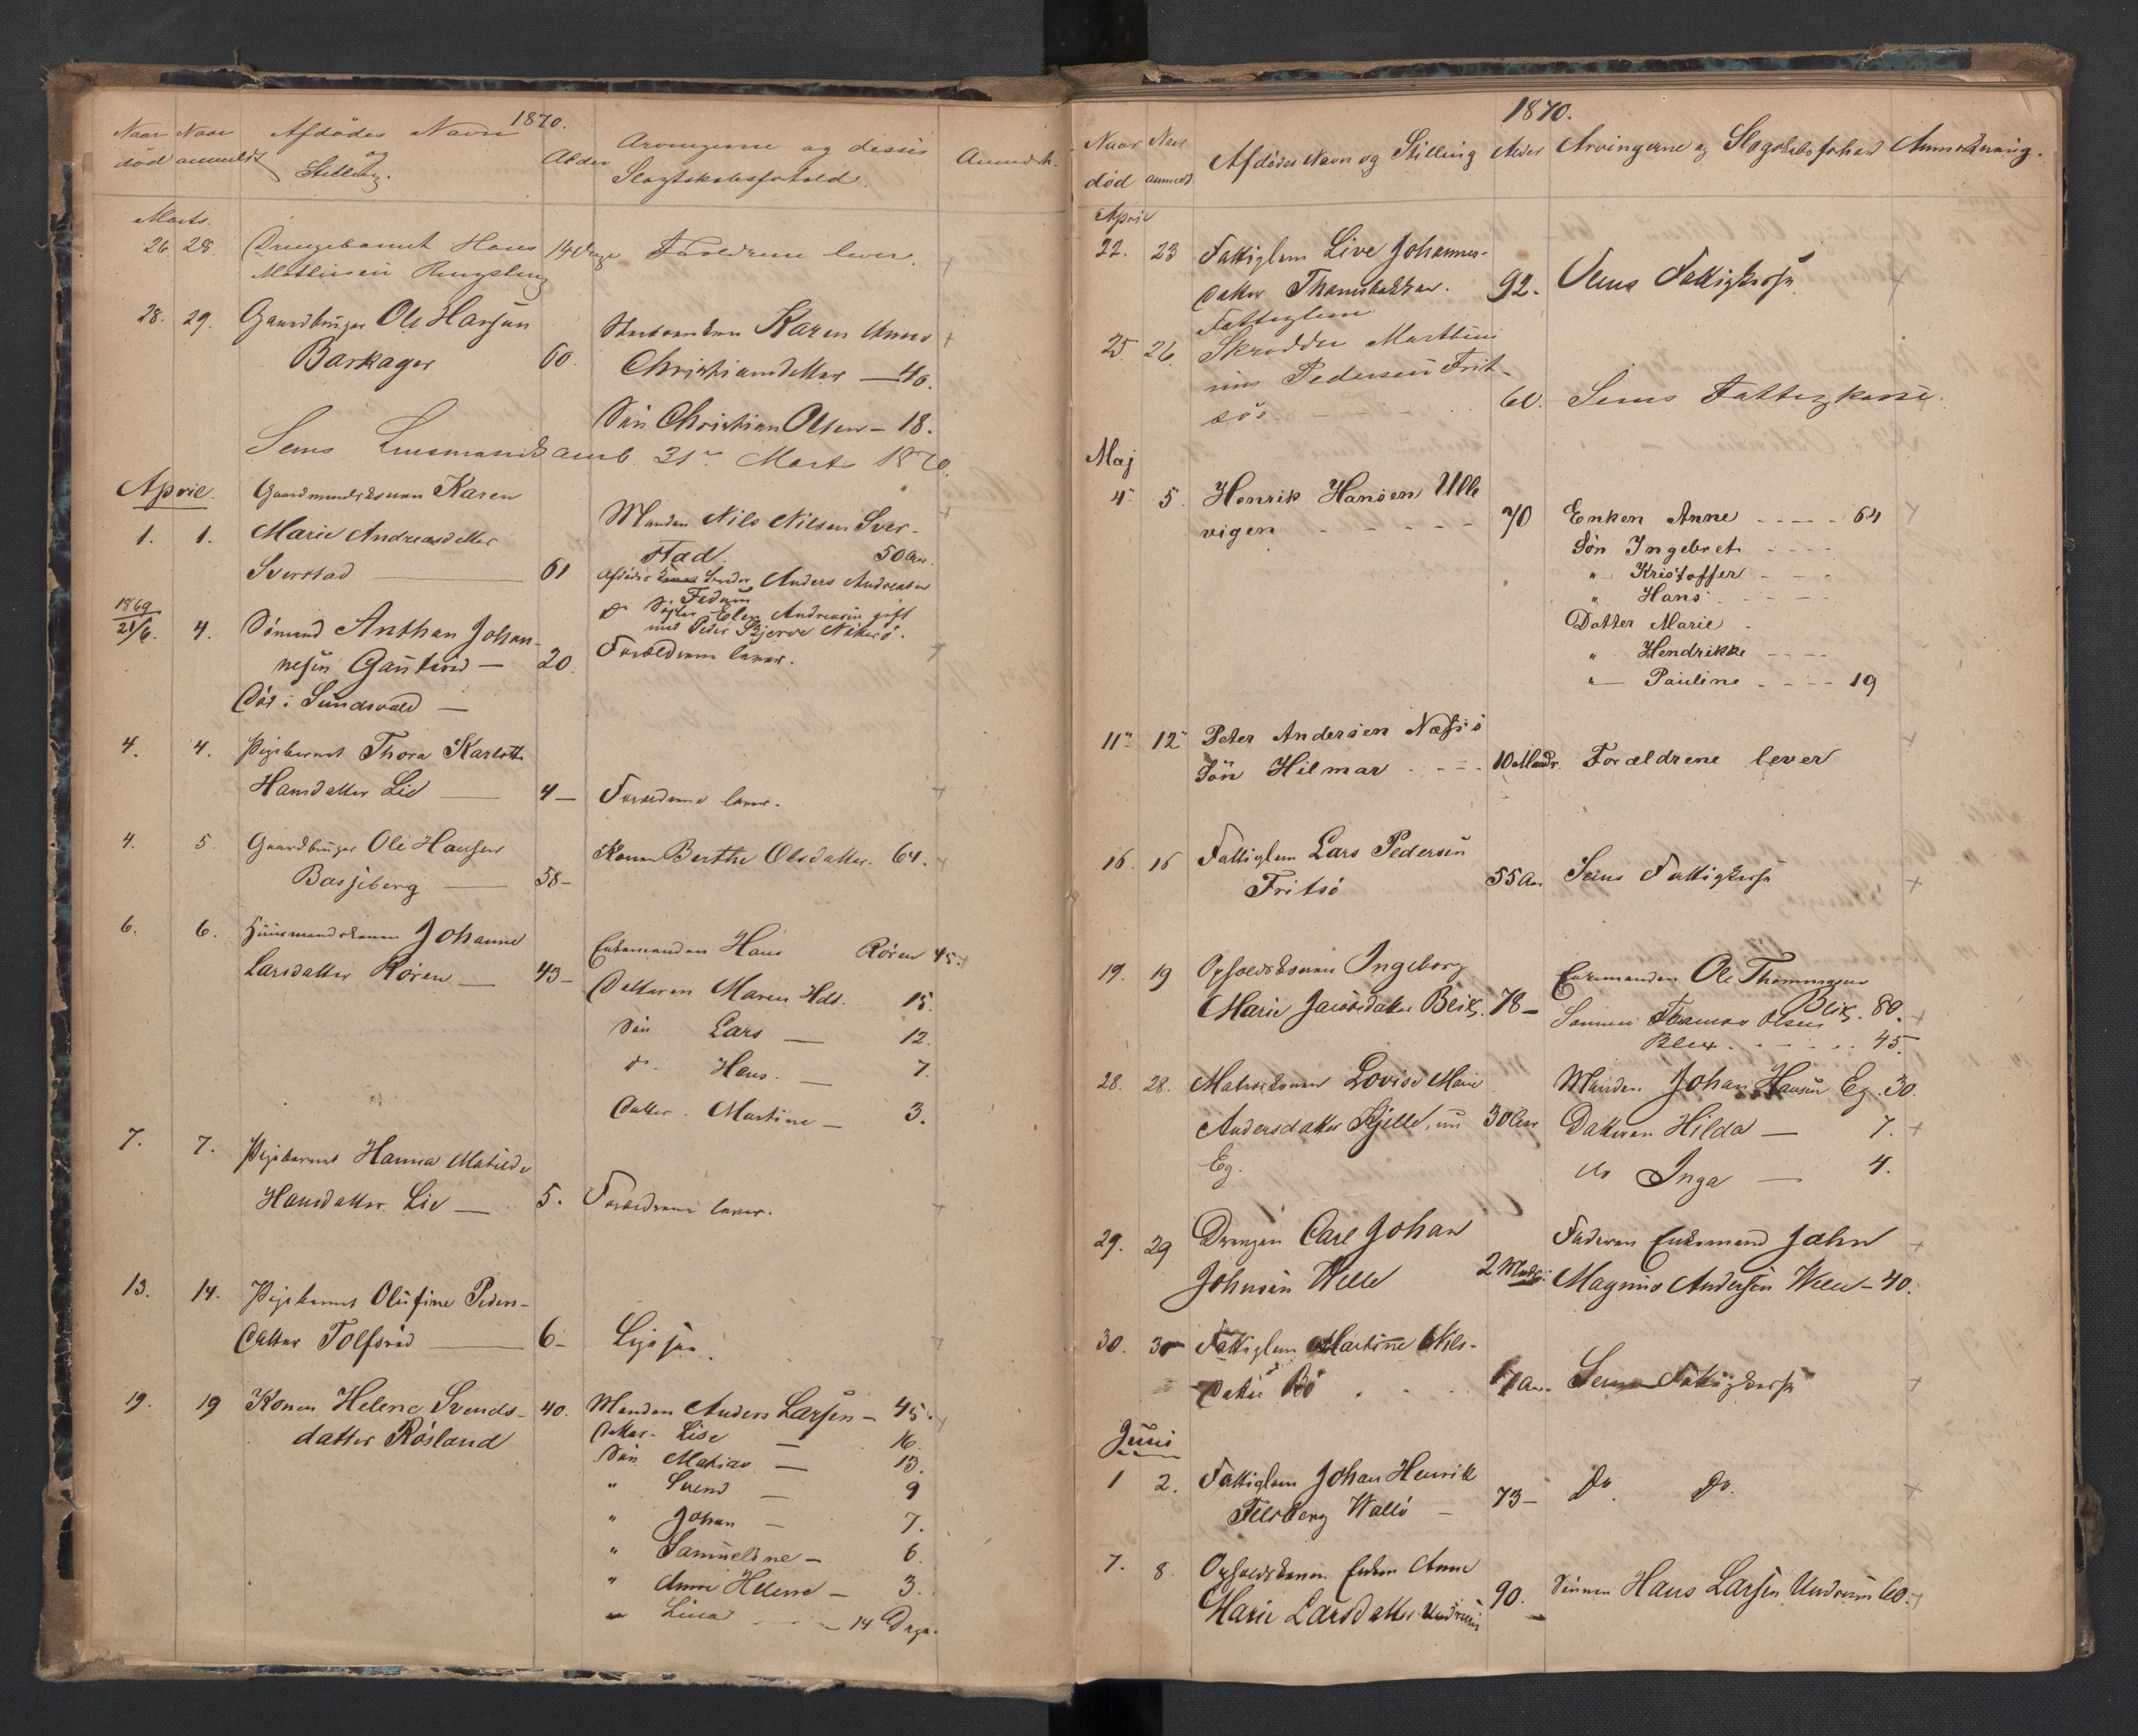 1870.
Naar Naar Afdødes Navn
død anmeldt og Stilling.
Alder
Arvingerne og disses
Slægtskabsforhold.
Anmærk.
Marts.
26. 28. Drengebarnet Hans 14 Dage Forældrene lever. +
Mathisen
28. 29. Gaardbruger Ole Hansen
Barkager 60.
Karen Anne +
Christiansdatter — 40.
Søn Christian Olsen — 18.
Sems Lensmandsomb. 31te Marts 1870.
April. Gaardmandskonen Karen
1. 1. Marie Andreasdatter
Sverstad — 61
Manden Nils Nilsen Sver- +
stad. 50 Aar.
Afdødes Broder Anders Andreasen
Fadum
do Søster Elen Andreasen gift
med Peder Skjerve Nøterø.
1869
21/6. 4. Sømand Anthon Johan-
nesen Gauterød — 20.
Død i Sundsvald —
Forældrene lever. +
4. 4. Pigebarnet Thora Karlotte
Hansdatter Lie — 4 — Forældrene lever. +
4. 5. Gaardbruger Ole Hansen
Basjeberg — 58 —
Konen Berthe Olsdatter. 64. +
6. 6. Huusmandskonen Johanne
Larsdatter Røren — 43 —
Enkemanden Hans Røren 45 +
Datteren Maren Hdt. 15.
Søn Lars — 12.
do. Hans. — 7.
Datter. Martine — 3.
7. 7. Pigebarnet Hanna Matilde
Hansdatter Lie — 5. Forældrene lever. +
13. 14. Pigebarnet Olufine Peders-
datter Tolfsrød — 6 — Ligesaa. +
19. 19 Konen Helene Svends- 40.
datter Rosland
Manden Anders Larsen — 45. +
Datter. Lise — 16.
Søn Matias — 13.
" Svend — 9
" Johan — 7.
" Samueline — 6.
" Anne Helene — 3.
" Lina — 14 Dage.
1870.
Naar Naar
død anmeldt
Afdødes Navn og Stilling Alder Arvingerne og Slægtskabsforhold Anmærkning.
April
22. 23 Fattiglem Live Johannes-
datter 92. Sems Fattigkasse +
Fattiglem
25. 26. Skrædder Marthin-
ius Pedersen Frit-
søe — 60. Sems Fattigkasse.
Maj
4. 5. Henrik Hansen Ulle
vigen - - - - - 70
Enken Anne - - - - 64 +
Søn Ingebret - - - -
" Kristoffer - - -
" Hans - - - -
Datter Marie -
" Hendrikke - - - -
" Pauline - - - - 19
11te 12te Peter Andersen Næssø
Søn Hilmar - - - - 10 Maadr. Forældrene lever +
16. 16 Fattiglem Lars Pedersen
Fritsø 55 Aar Sems Fattigkasse +
19. 19 Opholdskonen Ingeborg
Marie Jacobsdatter Blix. 78 —
Enkemanden Ole Thommesen
Blix. 80. +
Sønnen Thomas Olsen
Blix - - - - 45.
28. 28. Matroskonen Lovise Marie
Andersdatter Kjelle, nu 30 Aar
Eg.
Manden Johan Hansen Eg. 30.
Datteren Hilda — 7. +
do Inga — 4.
29. 29 Drengen Carl Johan
Johnsen Welle 2 Mndr.
Faderen Enkemand John +
Magnus Andersen Welle — 40.
30. 30 Fattiglem Martine Nils-
datter Bø - - - Sems Fattigkasse +
Juni
1 2. Fattiglem Johan Henrik
Felsberg Wallø — 73 — Do. Do. +
7. 8. Opholdskonen Enken Anne
Marie Larsdatter Undrum 90. Sønnen Hans Larsen Undrum 60. +